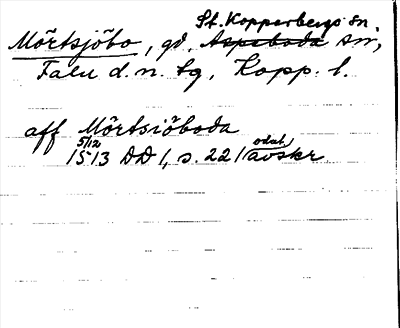 St. Kopparbergs sn.
Mörtsjöbo, gd, Aspeboda sn,
Falu d.n. tg, Kopp. l.
aff Mörtsiöboda
5/12 odat.
1513 DD 1, s. 221 avskr